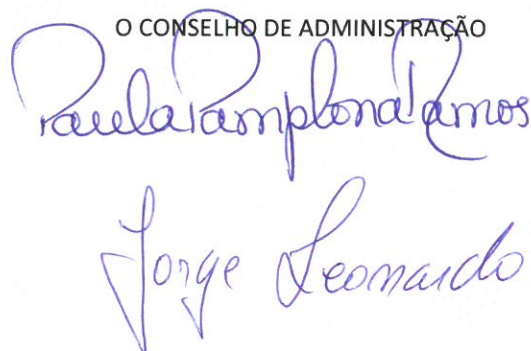 O CONSELHO DE ADMINISTRAÇÃO
Paula Pamplona Ramos
Jorge Leonardo